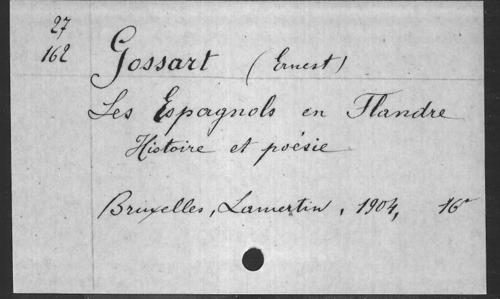 27
162
Gossart (Ernest)
Les Espagnols en Flandre
Histoire et poésie
Bruxelles, Lamertin, 1904, 16º